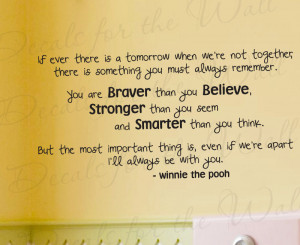 Decals for the Wall
If ever there is a tomorrow when we're not together,
there is something you must always remember.
You are Braver than you Believe,
Stronger than you seem
and Smarter than you think.
But the most important thing is, even if we're apart
I'll always be with you.
- winnie the pooh